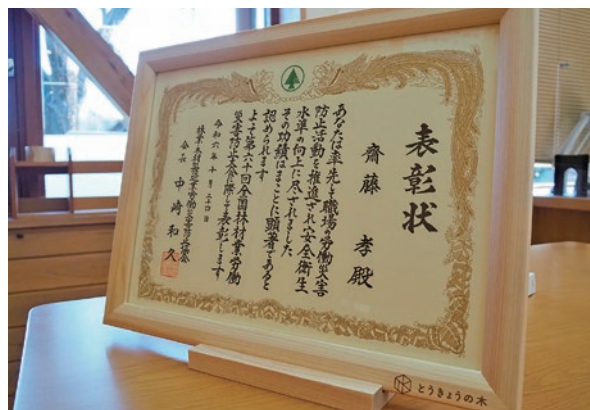 表彰状
齋藤 孝殿
あなたは率先して職場の労働災害
防止活動を推進され安全衛生
水準の向上に尽されました
その功績はまことに顕著であると
認められます
よって第六十回全国林材業労働
災害防止大会に際して表彰します
令和六年十月二十四日
林業・木材製造業労働災害防止協会
会長 中崎和久
とうきょうの木